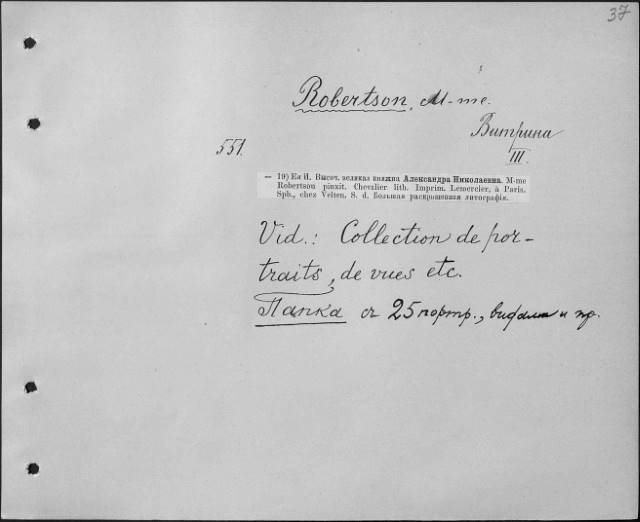 37
Robertson, M-me.
Витрина
III.
551.
— 19) Ея И. Высоч. великая княжна Александра Николаевна. M-me
Robertson pinxit. Chevalier lith. Imprim. Lemercier, à Paris.
Sph., chez Velten, S. d. Большая раскрашенная литографія.
Vid.: Collection de por-
traits, de vues etc.
Папка съ 25 портр., видами и пр.